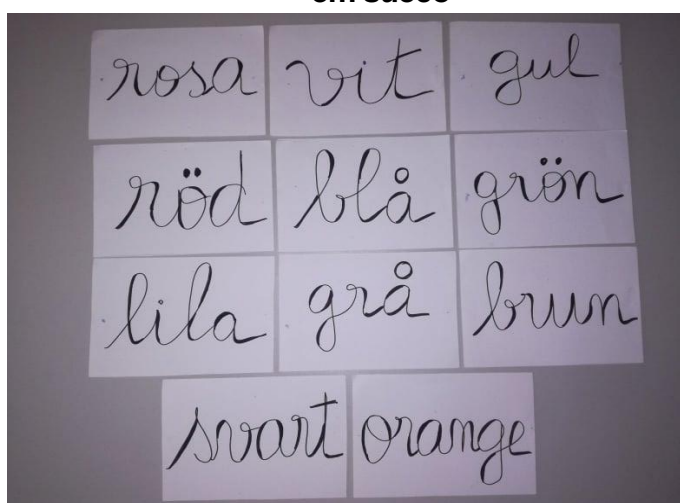 em sueco
rosa vit gul
röd blå grön
lila grå brun
svart orange